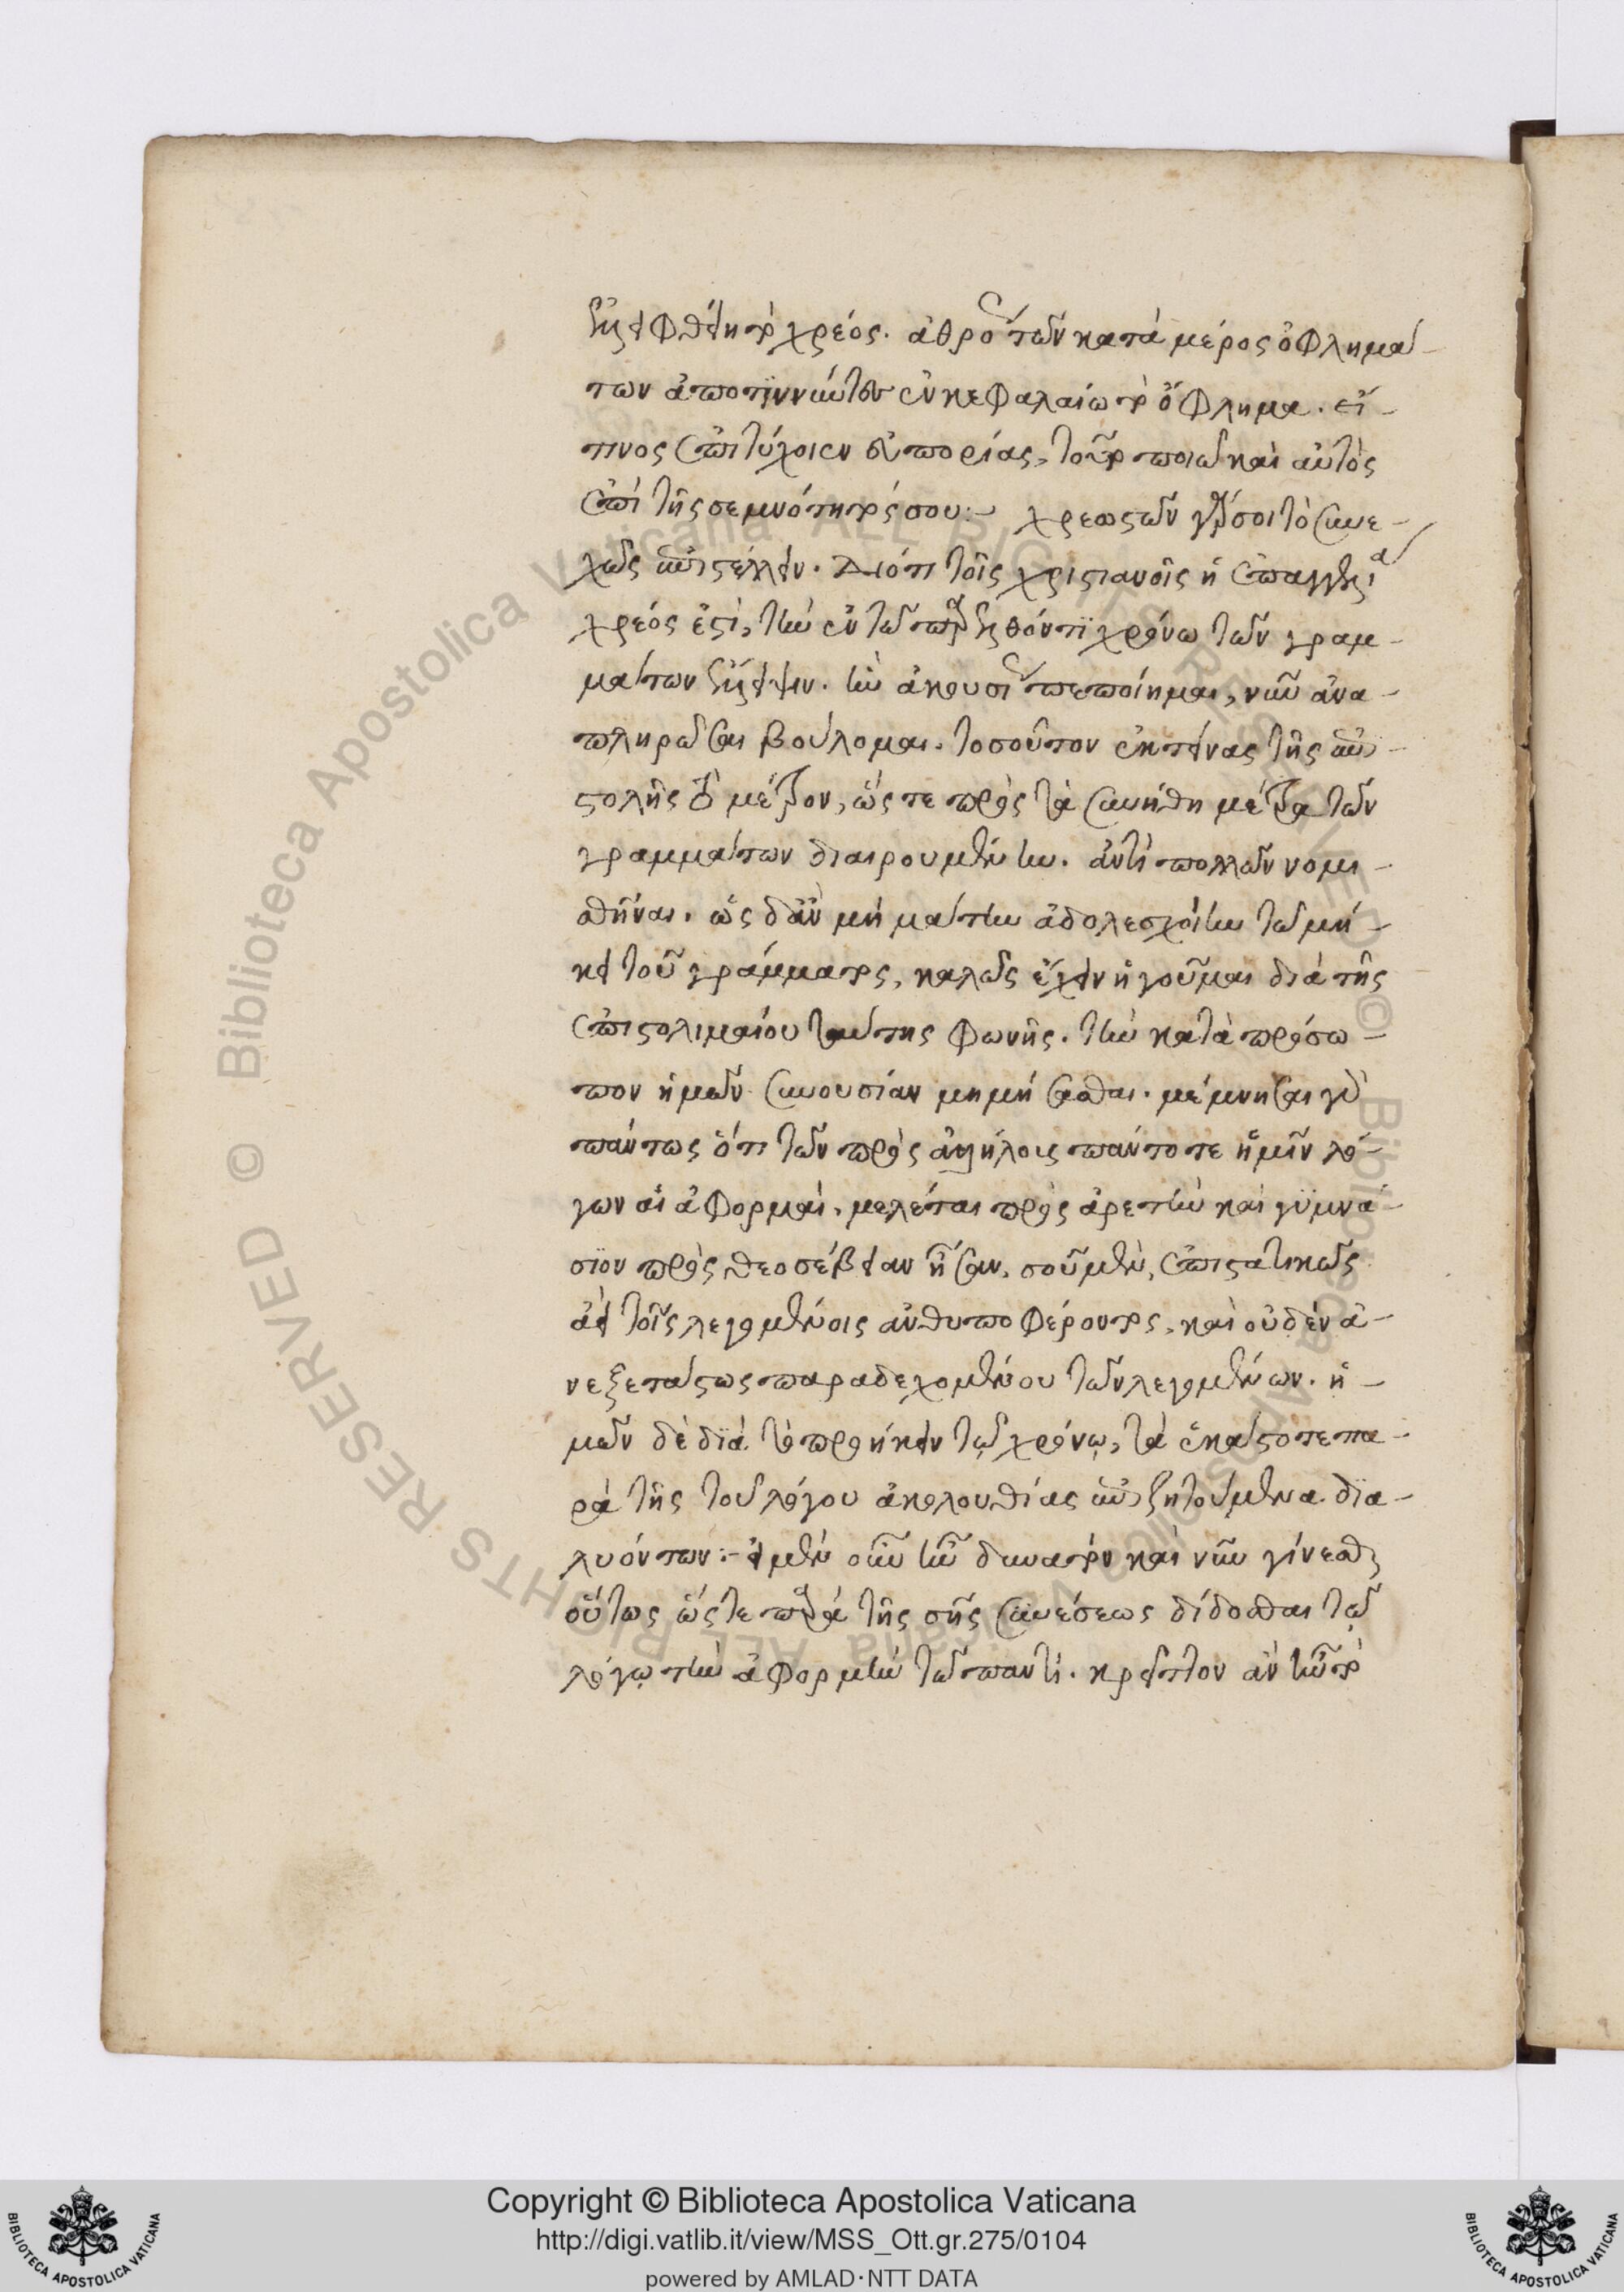 λειφθείη τὸ χρέος. ἀθρόως τῶν κατὰ μέρος ὀφλημά-
των ἀποτιννύντων ἐν κεφαλαίω τὸ ὄφλημα. εἴ-
τινος ἐπιτύχοιεν εὐπορίας, τοῦτο ποιῶ καὶ αὐτὸς
ἐπὶ τῆς σεμνότητός σου:- χρεωστῶν γάρ σοι τὸ συνε-
χῶς ἐπιστέλλειν. Διότι τοῖς χριστιανοῖς ἡ ἐπαγγελία
χρέος ἐστὶ, τὴν ἐν τῶ παρελθόντι χρόνω τῶν γραμ-
μάτων ἔλλειψιν. ἣν ἀκουσίως πεποίημαι, νῦν ἀνα-
πληρῶσαι βούλομαι. τοσοῦτον ἐκτείνας τῆς ἐπι-
στολῆς τὸ μέτρον, ὥστε πρὸς τὰ συνήθη μέτρα τῶν
γραμμάτων διαιρουμένην. ἀντὶ πολλῶν νομι-
σθῆναι. ὡς δ' ἂν μὴ μάτην ἀδολεσχοίην τῶ μή-
κει τοῦ γράμματος, καλῶς ἔχειν ἡγοῦμαι διὰ τῆς
ἐπιστολιμαίου ταύτης φωνῆς. τὴν κατὰ πρόσω-
πον ἡμῶν συνουσίαν μιμήσασθαι. μέμνησαι γὰρ
πάντως ὅτι τῶν πρὸς ἀλλήλοις πάντοτε ἡμῖν λό-
γων αἱ ἀφορμαὶ. μελέται πρὸς ἀρετὴν καὶ γυμνά-
σιον πρὸς θεοσέβειαν ἦσαν, σοῦ μὲν, ἐπιστατικῶς
ἀεὶ τοῖς λεγομένοις ἀνθυποφέροντος, καὶ οὐδὲν ἀ-
νεξετάστως παραδεχομένου τῶν λεγομένων. ἡ-
μῶν δὲ διὰ τὸ προήκειν τῷ χρόνῳ, τὰ ἑκάστοτε πα-
ρὰ τῆς τοῦ λόγου ἀκολουθίας ἐπιζητούμενα δια-
λυόντων:- εἰ μὲν οὖν ἦν δυνατὸν καὶ νῦν γίνεσθαι
οὕτως ὥστε παρὰ τῆς σῆς συνέσεως δίδοσθαι τῷ
λόγῳ τὴν ἀφορμὴν τῶ παντί. κρεῖττον ἂν ἦν τὸ
Copyright © Biblioteca Apostolica Vaticana
http://digi.vatlib.it/view/MSS_Ott.gr.275/0104
powered by AMLAD·NTT DATA